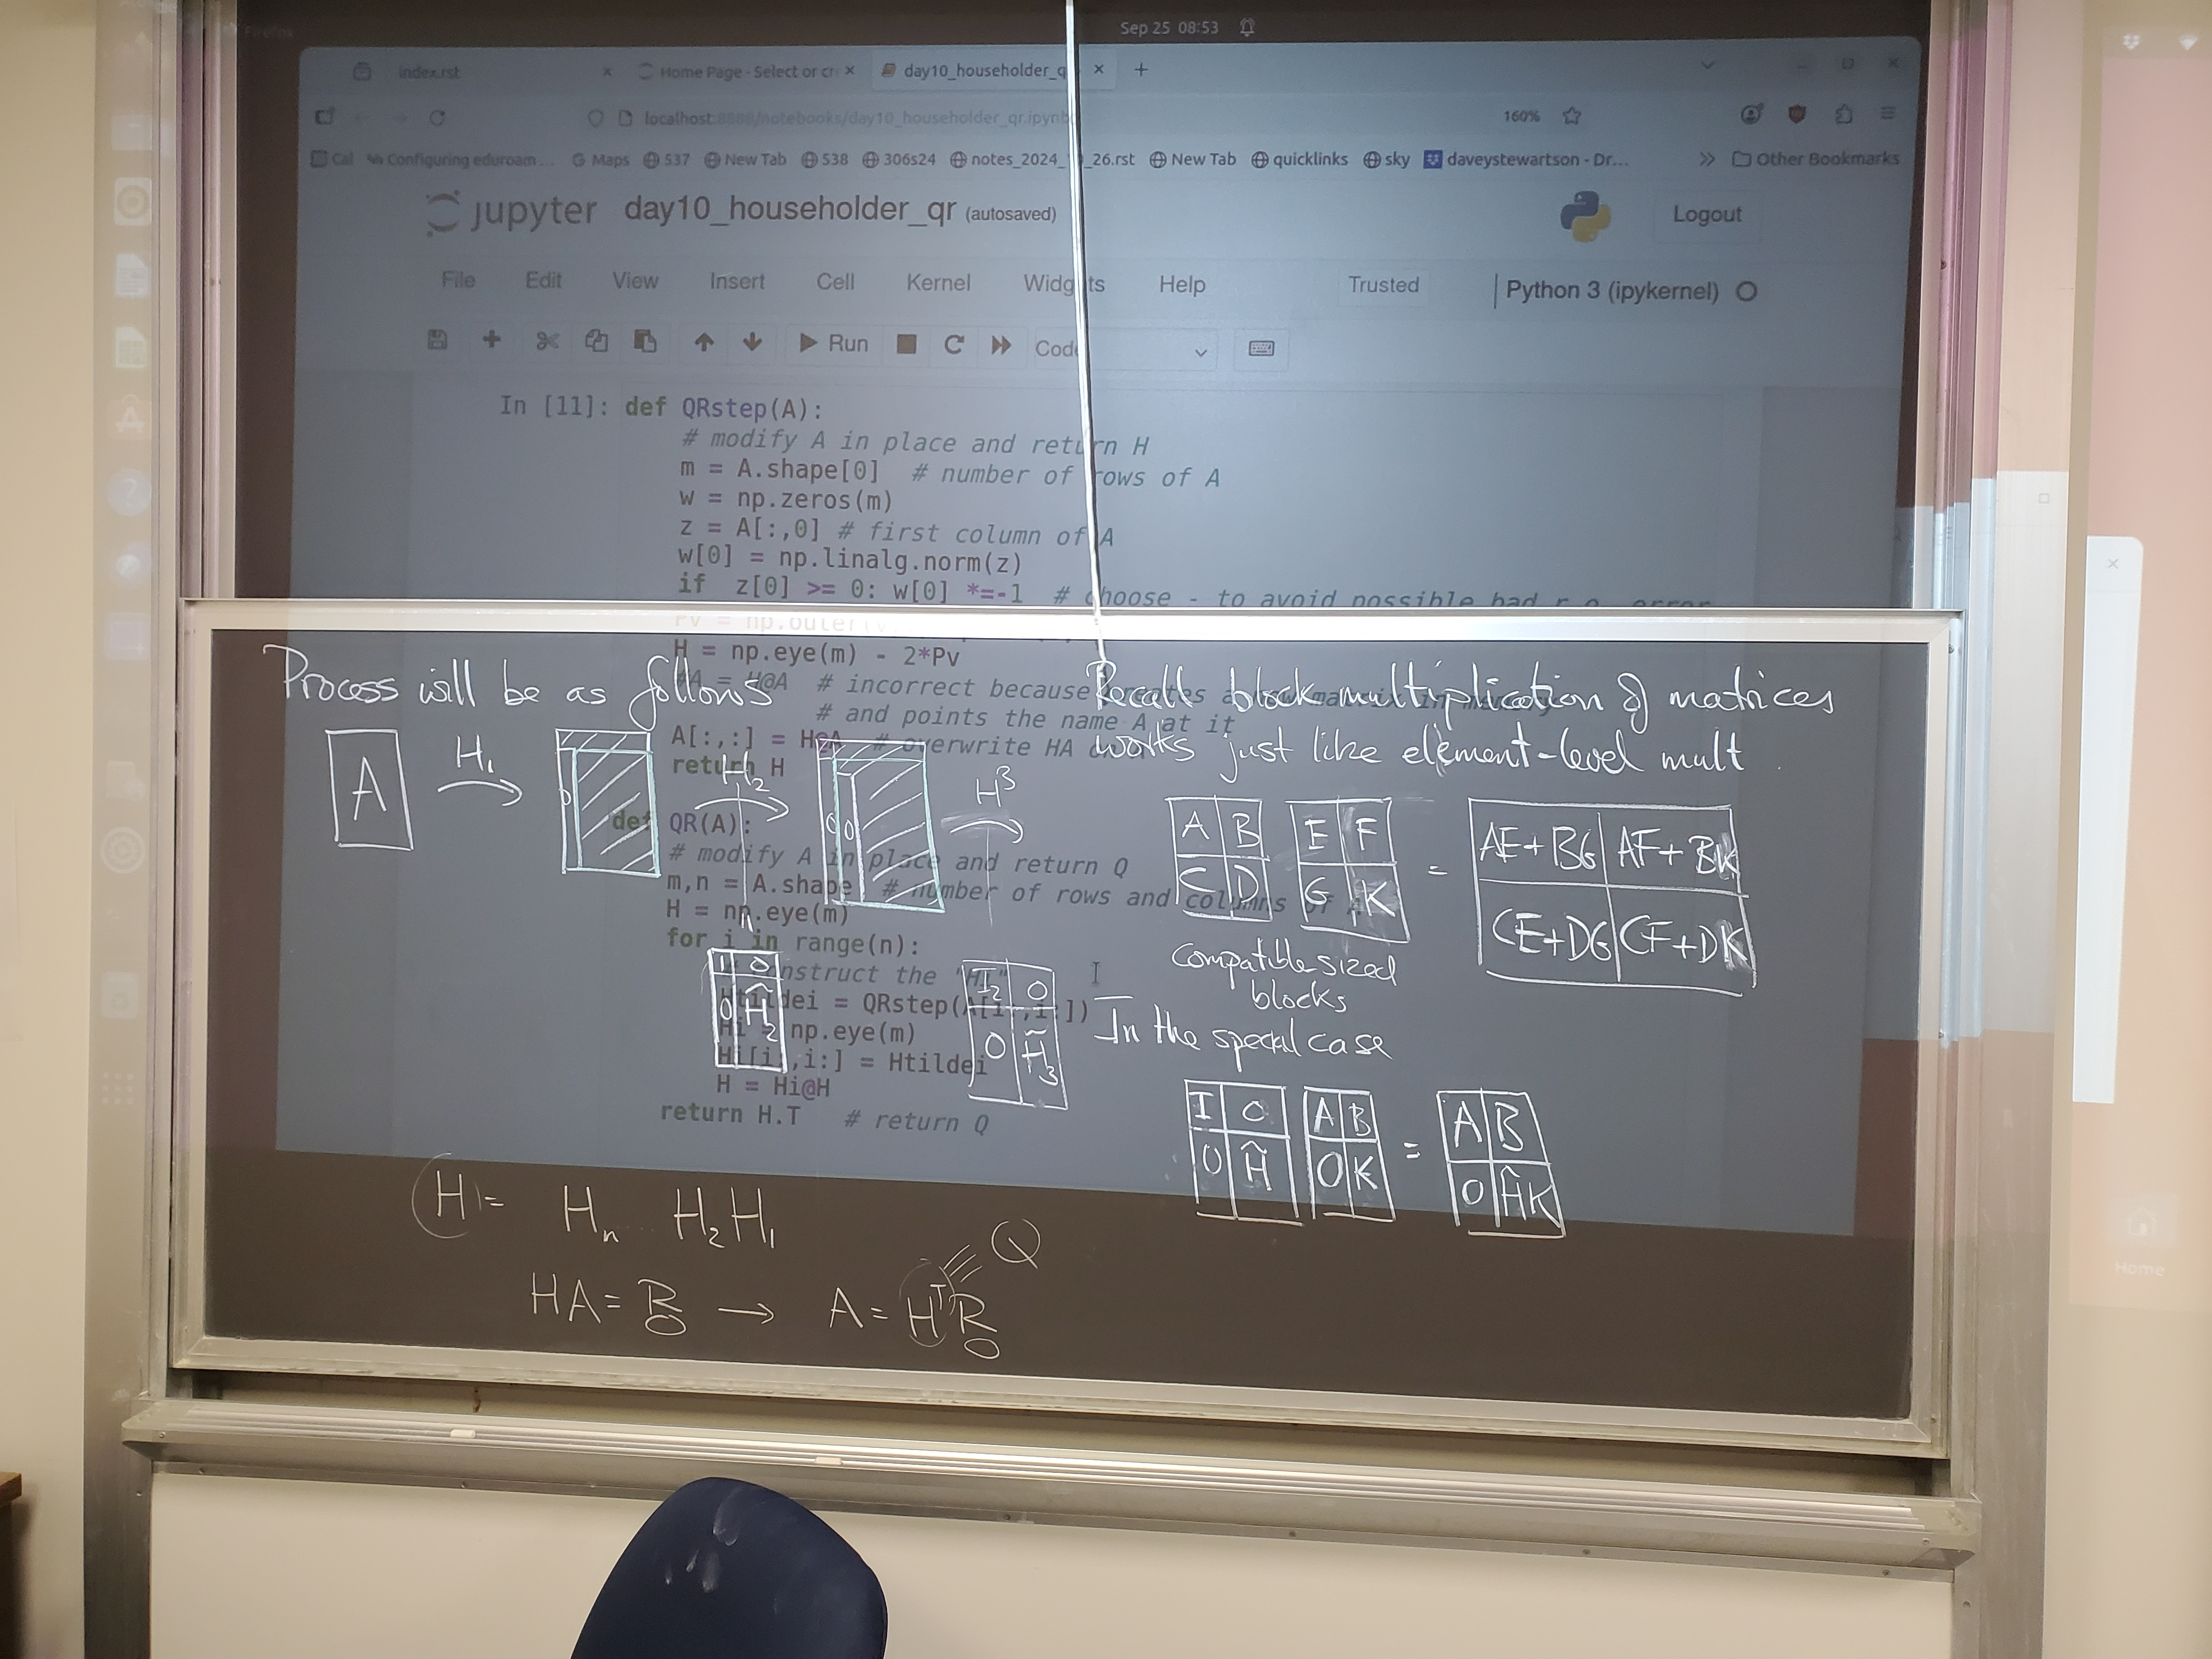 Firefox
Sep 25 08:53
index.rst × Home Page - Select or cr × day10_householder_q × +
localhost:8888/notebooks/day10_householder_qr.ipynb 160%
Cal Configuring eduroam ... Maps 537 New Tab 538 306s24 notes_2024_ _26.rst New Tab quicklinks sky daveystewartson - Dr... >> Other Bookmarks
jupyter day10_householder_qr (autosaved) Logout
File Edit View Insert Cell Kernel Widgets Help Trusted Python 3 (ipykernel)
Run Code
In [11]: def QRstep(A):
# modify A in place and return H
m = A.shape[0] # number of rows of A
w = np.zeros(m)
z = A[:,0] # first column of A
w[0] = np.linalg.norm(z)
if z[0] >= 0: w[0] *=-1 # choose - to avoid possible bad r.o. error
Pv = np.outer(v,
H = np.eye(m) - 2*Pv
#A = H@A # incorrect because creates a new matrix in memory
# and points the name A at it
A[:,:] = H@A # overwrite HA
return H
def QR(A):
# modify A in place and return Q
m,n = A.shape # number of rows and columns of A
H = np.eye(m)
for i in range(n):
# construct the "Hi"
Htildei = QRstep(A[i:,i:])
Hi = np.eye(m)
Hi[i:,i:] = Htildei
H = Hi@H
return H.T # return Q
Process will be as follows
A H₁ 0 H₂ 0 0 H³
1 0
0 Ĥ₂
I₂ 0
0 H̃₃
H = Hₙ .... H₂H₁
HA = R → A = HᵀR
0 0
Q
Recall block multiplication of matrices
works just like element-level mult.
A B E F = AE+BG AF+BK
C D G K CE+DG CF+DK
compatible sized
blocks
In the special case
I 0 A B = A B
0 Ĥ 0 K 0 ĤK
Home